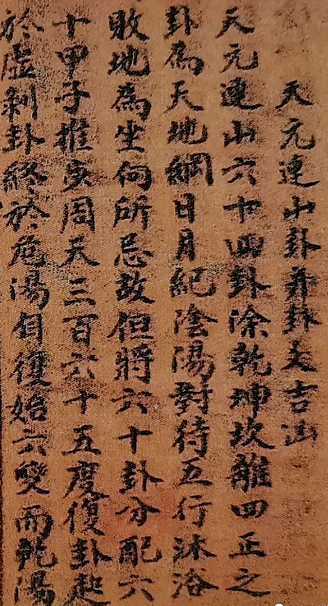 天元連山卦并卦爻吉凶
天元連山六十四卦除乾坤坎離四正之
卦為天地綱日月紀陰陽對待五行沐浴
敗地為坐向所忌故但將六十卦分配六
十甲子推步周天三百六十五度復卦起
於虛剝卦終於危陽自復始六變而乾陽